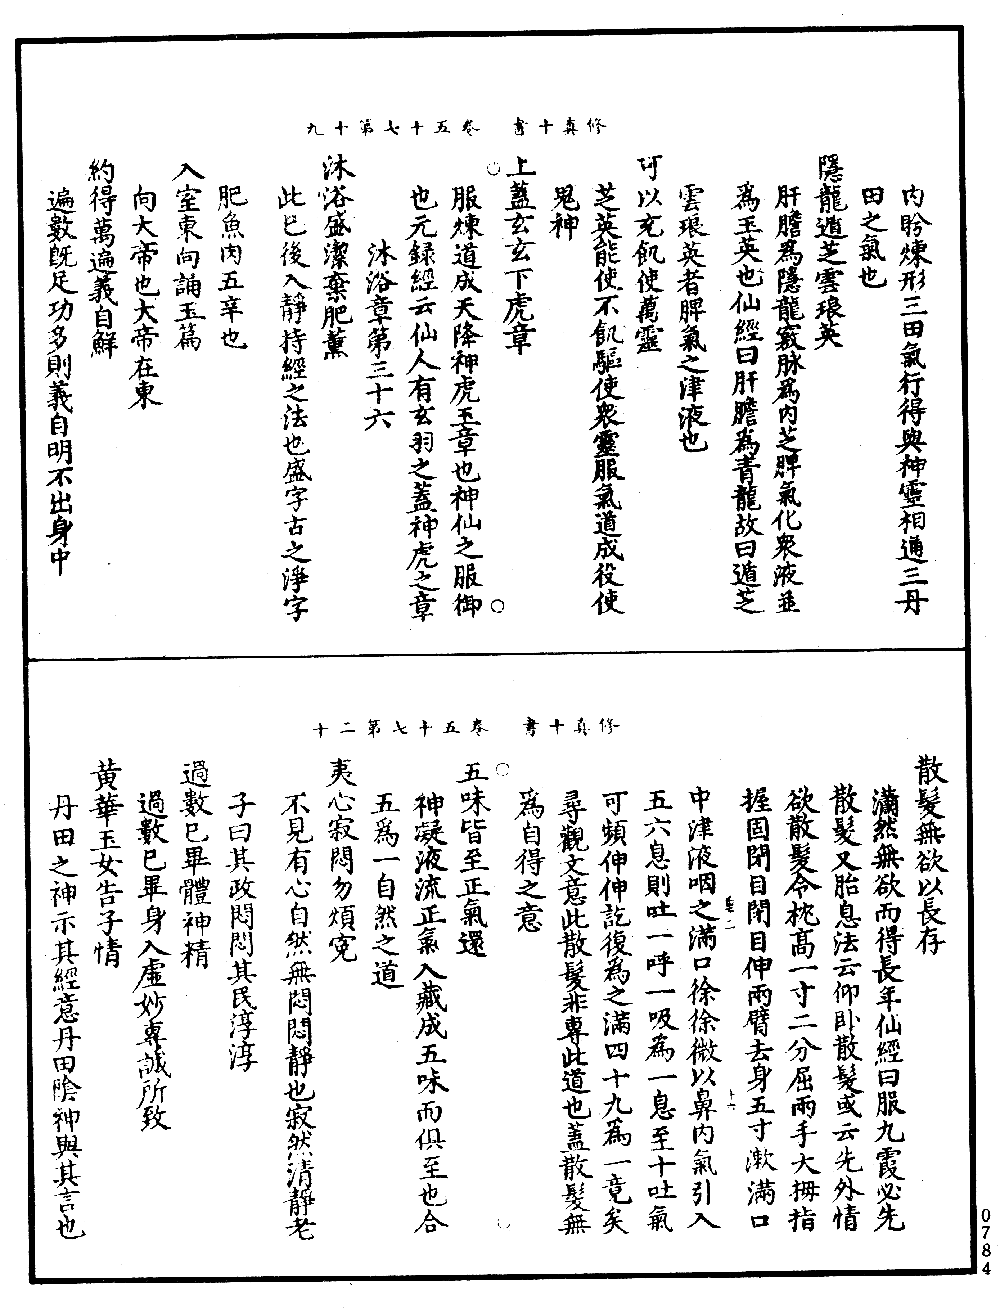 修真十書　卷五十七第十九
內盼煉形三田氣行得與神靈相通三丹
田之氣也
隱龍遁芝雲琅英
肝膽為隱龍竅脉為內芝脾氣化衆液並
為玉英也仙經曰肝膽為青龍故曰遁芝
雲琅英者脾氣之津液也
可以充飢使萬靈
芝英能使不飢驅使衆靈服氣道成役使
鬼神
上蓋玄玄下虎章
服煉道成天降神虎玉章也神仙之服御
也元録經云仙人有玄羽之蓋神虎之章
沐浴章第三十六
沐浴盛潔棄肥薰
此已後入靜持經之法也盛字古之淨字
肥魚肉五辛也
入室東向誦玉篇
向大帝也大帝在東
約得萬遍義自鮮
遍數既足功多則義自明不出身中
修真十書　卷五十七第二十
散髮無欲以長存
瀟然無欲而得長年仙經曰服九霞必先
散髮又胎息法云仰卧散髮或云先外情
欲散髮令枕高一寸二分屈兩手大拇指
握固閉目閉目伸兩臂去身五寸漱滿口
中津液咽之滿口徐徐微以鼻內氣引入
五六息則吐一呼一吸為一息至十吐氣
可頻伸伸訖復為之滿四十九為一竟矣
尋觀文意此散髮非專此道也蓋散髮無
為自得之意
五味皆至正氣還
神凝液流正氣入藏成五味而俱至也合
五為一自然之道
夷心寂悶勿煩寃
不見有心自然無悶悶靜也寂然清靜老
子曰其政悶悶其民淳淳
過數已畢體神精
過數已畢身入虛妙專誠所致
黃華玉女告子情
丹田之神示其經意丹田陰神與其言也
0784